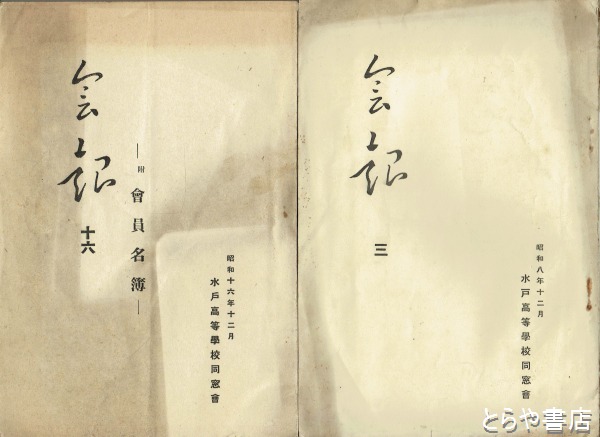 会報
三
昭和八年十二月
水戸高等學校同窓會
会報
十六
―附 會員名簿―
昭和十六年十二月
水戸高等學校同窓會
とらや書店